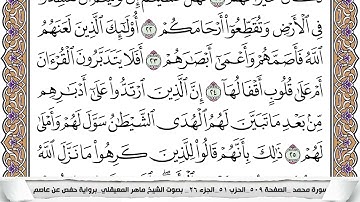 فِي الْأَرْضِ وَتُقَطِّعُوا أَرْحَامَكُمْ ٢٢ أُولَٰئِكَ الَّذِينَ لَعَنَهُمُ
اللَّهُ فَأَصَمَّهُمْ وَأَعْمَىٰ أَبْصَارَهُمْ ٢٣ أَفَلَا يَتَدَبَّرُونَ الْقُرْءَانَ
أَمْ عَلَىٰ قُلُوبٍ أَقْفَالُهَا ٢٤ إِنَّ الَّذِينَ ارْتَدُّوا عَلَىٰ أَدْبَارِهِم
مِّن بَعْدِ مَا تَبَيَّنَ لَهُمُ الْهُدَى الشَّيْطَانُ سَوَّلَ لَهُمْ وَأَمْلَىٰ
لَهُمْ ٢٥ ذَٰلِكَ بِأَنَّهُمْ قَالُوا لِلَّذِينَ كَرِهُوا مَا نَزَّلَ اللَّهُ
سورة محمد _الصفحة ٥٠٩_الحزب ٥١_الجزء ٢٦_ بصوت الشيخ ماهر المعيقلي_برواية حفص عن عاصم